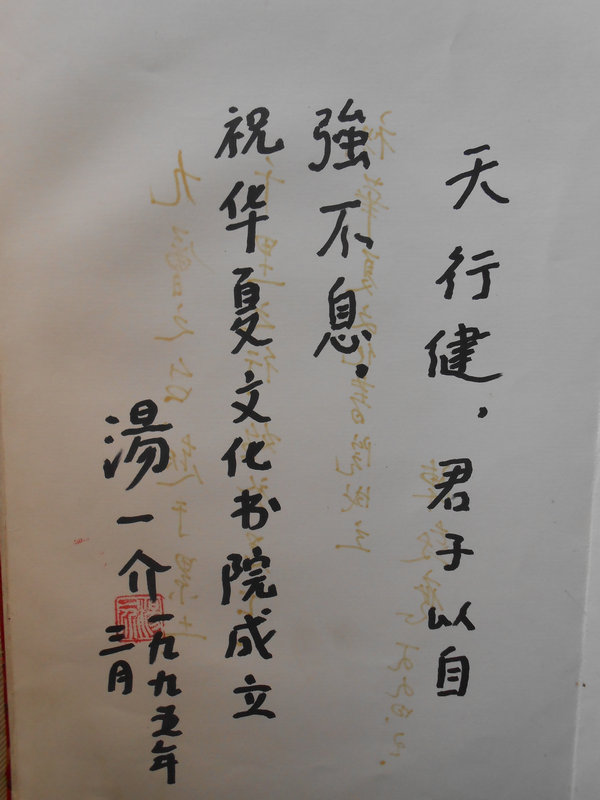 天行健，君子以自
強不息。
祝华夏文化书院成立
湯一介
一九九五年
三月